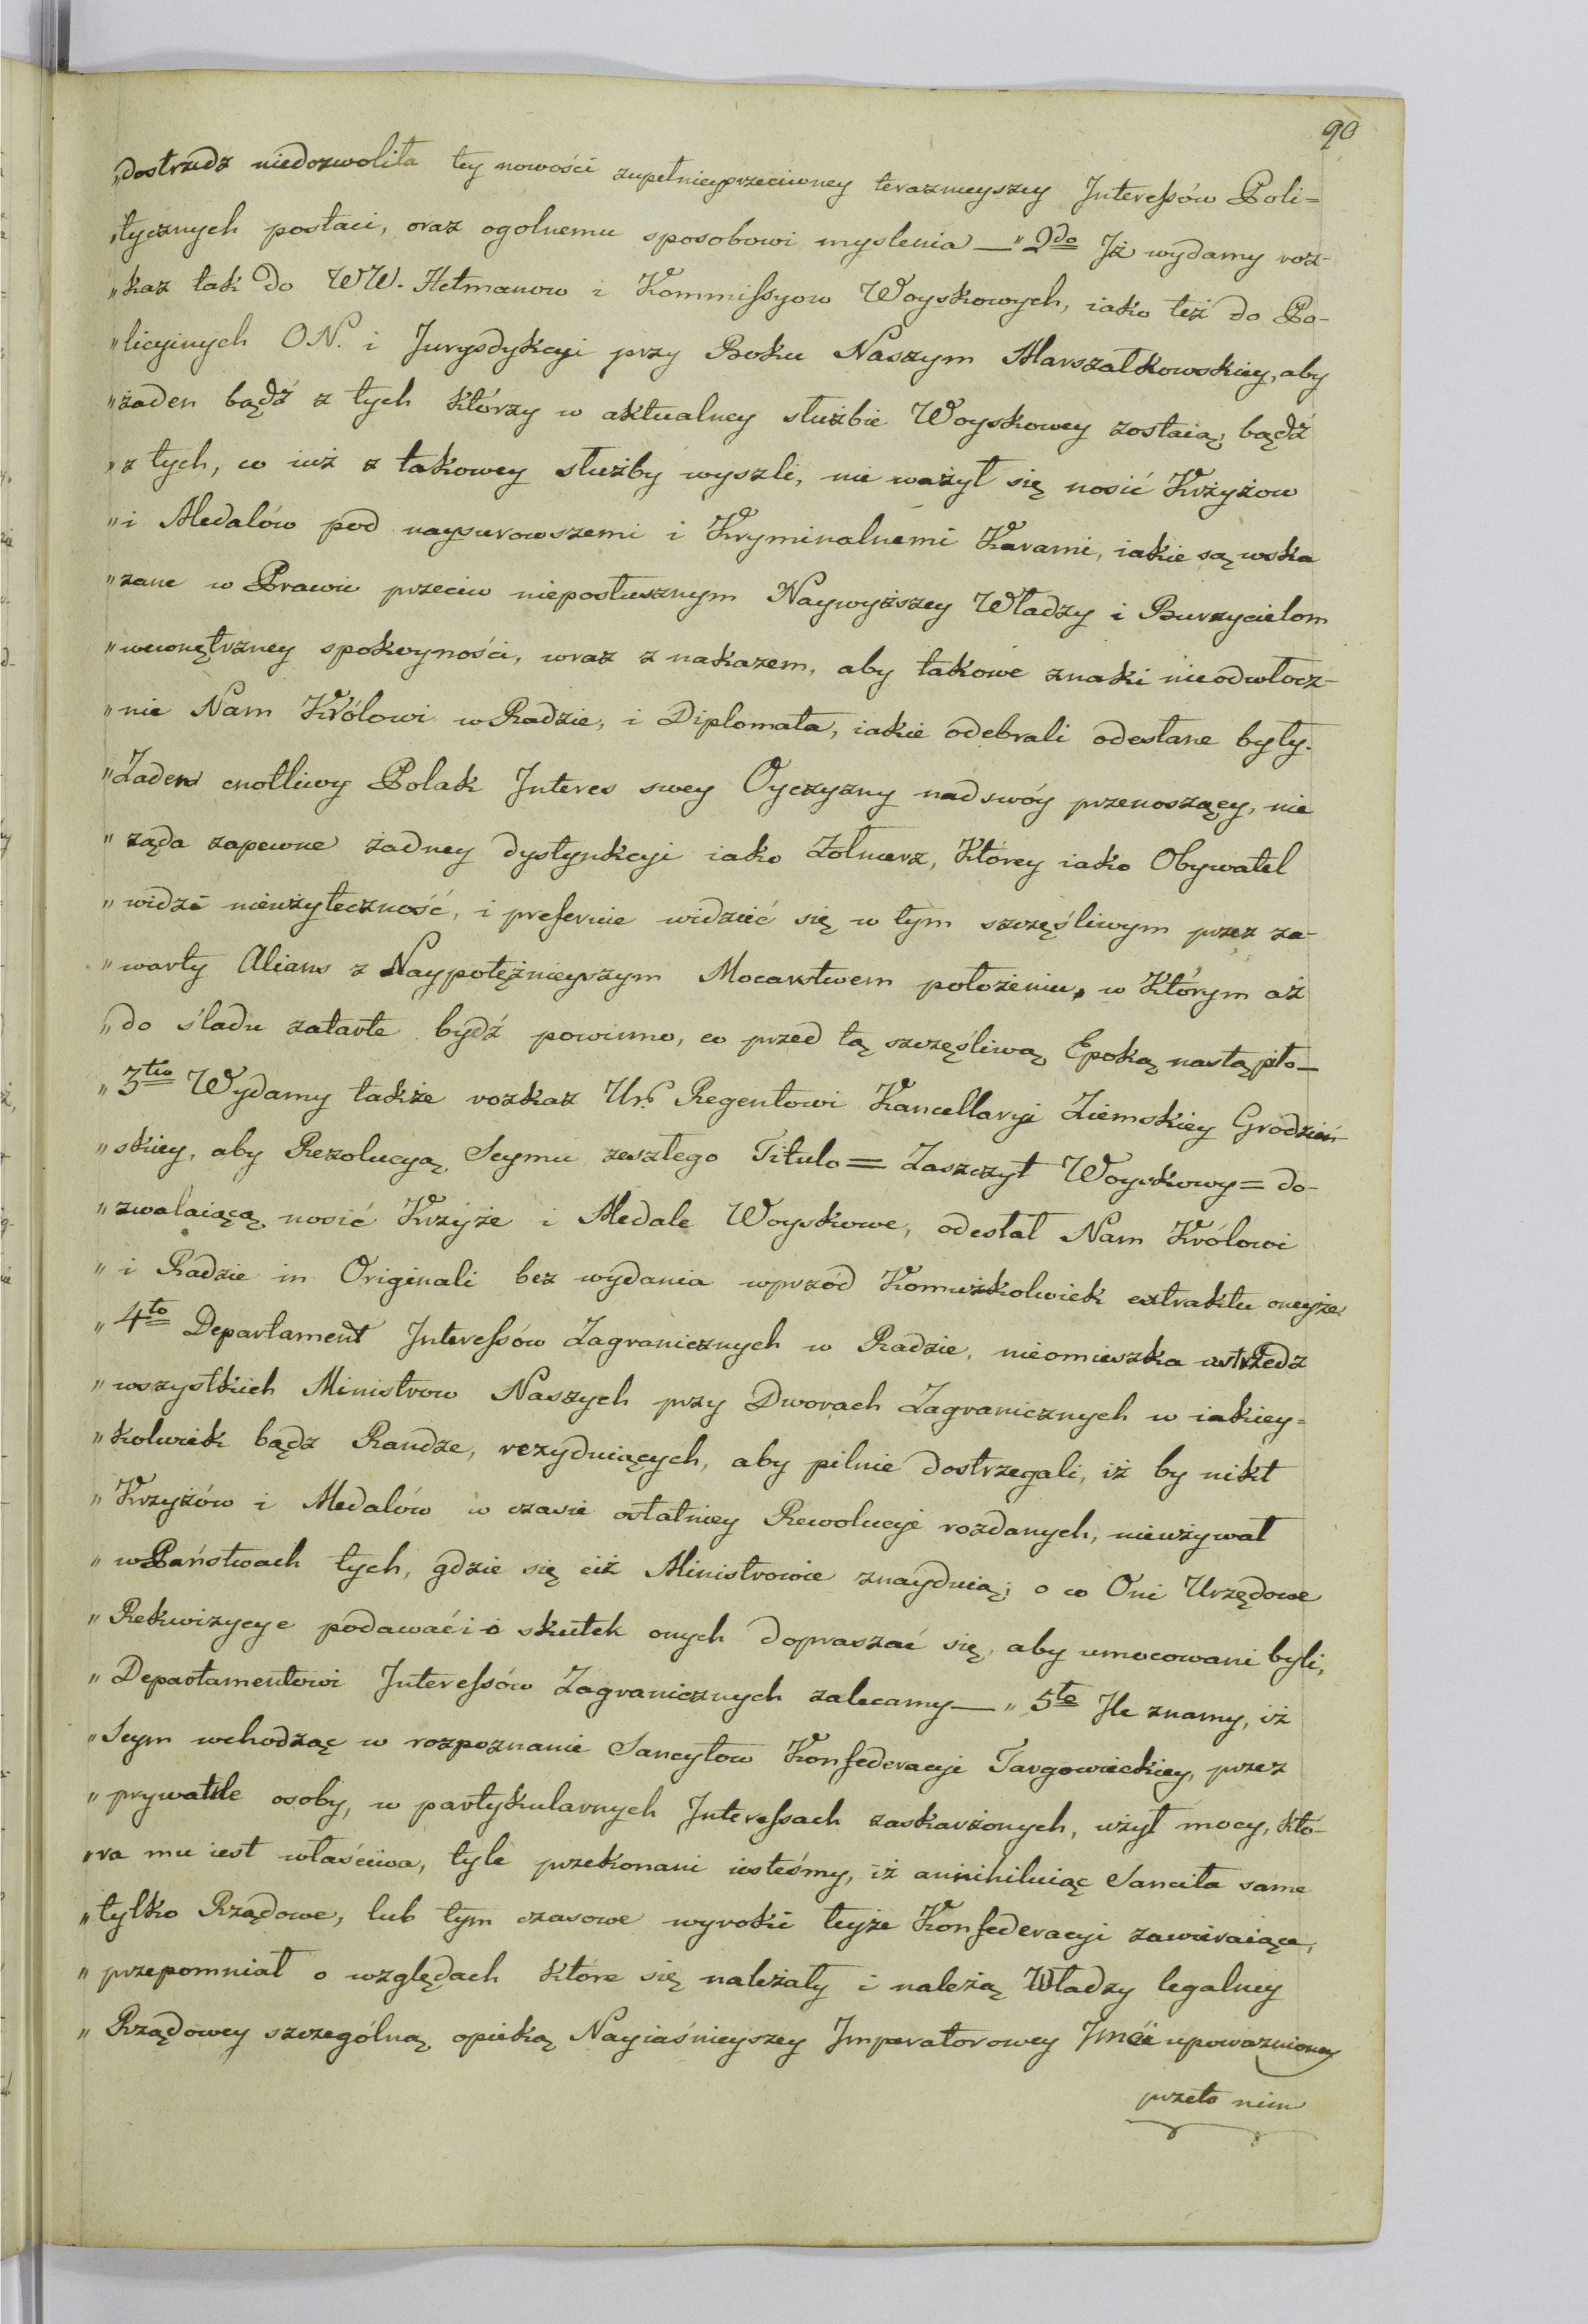 90
„dostrzedz niedozwoliła tey nowości zupełnieyprzeciwney terazneyszey Interessów Poli=
„tycznych postaci, oraz ogolnemu sposobowi myslenia —„ 2do Iż wydamy roz-
„kaz tak do WW. Hetmanow i Kommissyow Woyskowych, iako też do Po-
„licyinych O.N. i Jurysdykcyi przy Boku Naszym Marszałkowskiey, aby
„żaden bądź z tych którzy w aktualney służbie Woyskowey zostaią, bądź
„z tych, co iuż z takowey służby wyszli, nie ważył się nosić Krzyżow
„i Medalów pod naysurowszemi i Kryminalnemi Karami, iakie są wska
„zane w Prawie przeciw nieposłusznym Naywyższey Władzy i Burzycielom
„wewnętrzney spokoyności, wraz z nakazem, aby takowe znaki nieodwłocz-
„nie Nam Królowi w Radzie, i Diplomata, iakie odebrali odesłane były.
„Żaden cnotliwy Polak Interes swey Oyczyzny nad swóy przenoszący, nie
„żąda zapewne żadney dystynkcyi iako Żołnierz, Którey iako Obywatel
„widzi nieużyteczność, i preferuie widzieć się w tym szczęśliwym przez za-
„warty Alians z Naypotężnieyszym Mocarstwem położeniu, w Którym aż
„do śladu zatarte bydź powinno, co przed tą szczęśliwą Epoką nastąpiło —
„3tio Wydamy także rozkaz Ur. Regentowi Kancellaryi Ziemskiey Grodzień-
„skiey, aby Rezolucyą Seymu zeszłego Titulo = Zaszczyt Woyskowy = do-
„zwalaiącą nosić Krzyże i Medale Woyskowe, odesłał Nam Królowi
„i Radzie in Originali bez wydania wprzód Komużkolwiek extraktu oneyże.
„4to Departament Interessów Zagranicznych w Radzie, nieomieszka ostrzedz
„wszystkich Ministrow Naszych przy Dworach Zagranicznych w iakiey=
„kolwiek bądz Randze, rezyduiących, aby pilnie dostrzegali, iż by nikt
„Krzyżów i Medalów w czasie ostatniey Rewolucyi rozdanych, nieużywał
„w Państwach tych, gdzie się ciż Ministrowie znayduią; o co Oni Urzędowe
„Rekwizycye podawać i o skutek onych dopraszać się, aby umocowani byli,
„Departamentowi Interessów Zagranicznych zalecamy —„ 5te Ile znamy, iż
„Seym wchodząc w rozpoznanie Sancytow Konfederacyi Targowickiey, przez
„prywatne osoby, w partykularnych Interessach zaskarżonych, użył mocy, któ-
„ra mu iest właściwa, tyle przekonani iesteśmy, iż annihiluiąc Sancita same
„tylko Rządowe, lub tym czasowe wyroki teyże Konfederacyi zawieraiące,
„przepomniał o względach które się należały i należą Władzy legalney
„Rządowey szczególną opieką Nayiaśnieyszey Imperatorowey Jmći upoważnioney
przeto nim